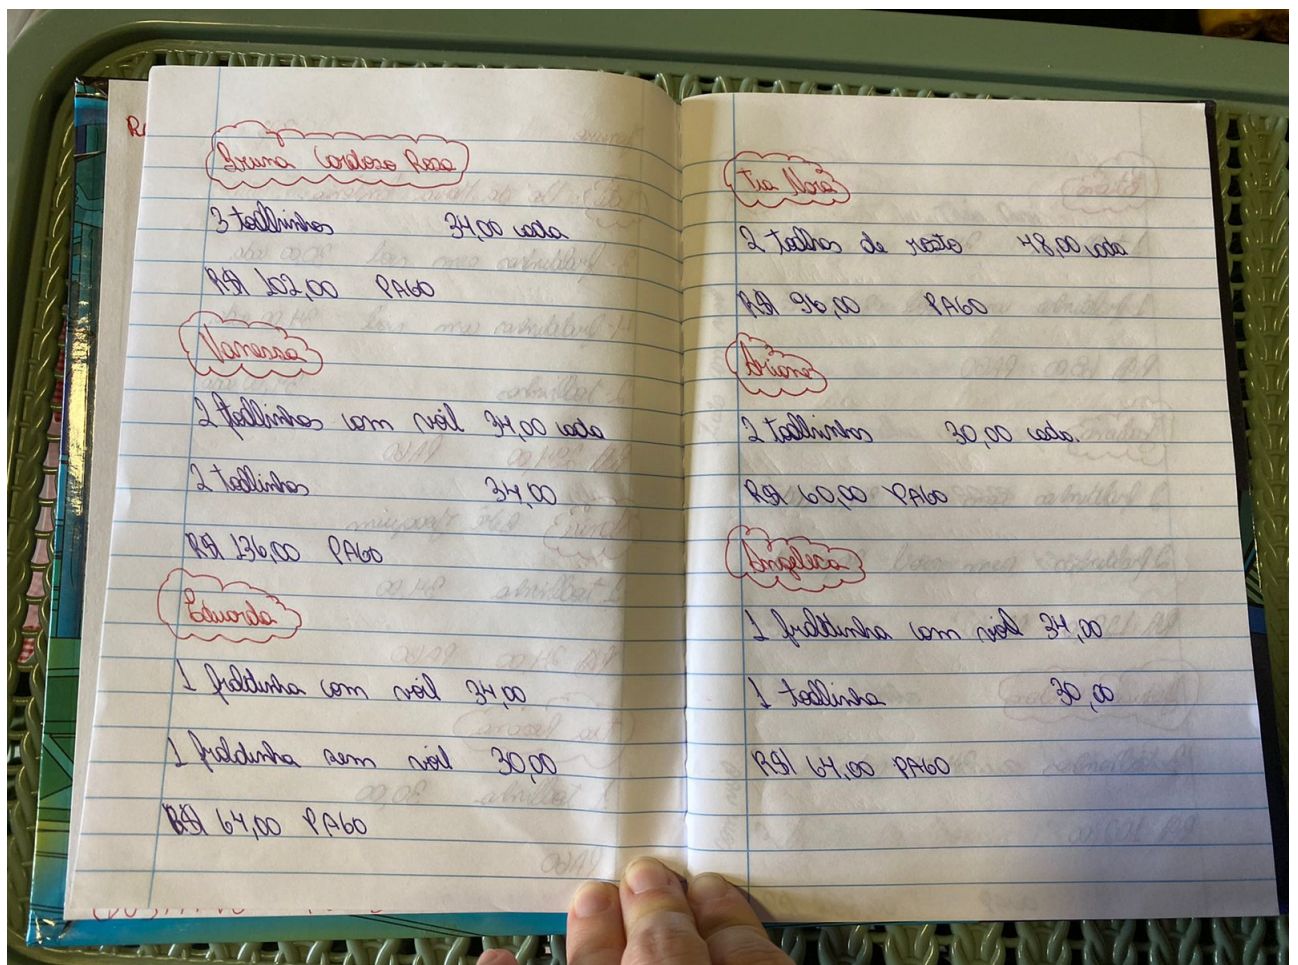 Bruna Cardozo Rosa
3 toallinhas 34,00 cada
R$ 102,00 PAGO
Vanessa
2 toallinhas com voil 34,00 cada
2 toallinhas 34,00
R$ 136,00 PAGO
Eduarda
1 fraldinha com voil 34,00
1 fraldinha sem voil 30,00
R$ 64,00 PAGO
Tia Nora
2 toalhas de rosto 48,00 cada
R$ 96,00 PAGO
Ariane
2 toallinhas 30,00 cada.
R$ 60,00 PAGO
Angelica
1 fraldinha com voil 34,00
1 toallinha 30,00
R$ 64,00 PAGO